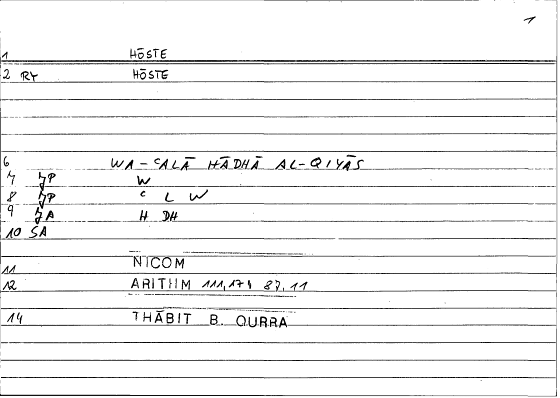 1
1 HŌSTE
2 RY HŌSTE
6 WA-ʿALĀ HĀDHĀ AL-QIYĀS
7 JP W
8 JP ʿ L W
9 JA H DH
10 SA
11 NICOM
12 ARITHM 111,174 87,11
14 THĀBIT B. QURRA